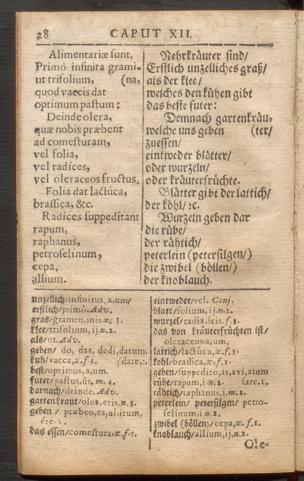 28 CAPUT XII.
Alimentariæ sunt,
Primò infinita grami-
ut trifolium, (na,
quod vaccis dat
optimum pastum:
Deinde olera,
quæ nobis præbent
ad comesturam,
vel folia,
vel radices,
vel oleraceos fructus,
Folia dat lactúca,
brassica, &c.
Radices suppeditant
rapum,
raphanus,
petroselinum,
cepa,
allium.
Nehrkräuter sind/
Erstlich unzelliches graß/
als der klee/
welches den kühen gibt
das beste futer:
Demnach gartenkräu,
welche uns geben (ter/
zuessen/
eintweder blätter/
oder wurzeln/
oder kräutersfrüchte.
Blätter gibt der lattich/
der köhl/ ꝛc.
Wurzeln geben dar
die rübe/
der rähtich/
peterlein (petersilgen/)
die zwibel (böllen/)
der knoblauch.
unzellich/infinitus,a,um/
erstlich/primò. Adv.
gras/gramen,inis.n. 3.
klee/trifolium,ij.n.2.
als/ut. Adv.
geben/ do, das, dedi,datum,
kuh/vacca,æ.f.1. (dare.1.
best/optimus,a,um.
futer/pastus,ûs,m. 4.
darnach/deinde. Adv.
gartenkraut/olus,eris.n.3.
geben / præbeo,es,ui,itum,
ére.2.
das essen/comestura,æ.f.1.
eintweder/vel. Conj.
blatt/folium,ij.n.2.
wurzel/radix,icis.f.3.
das von kräuterfrüchten ist/
oleraceus,a,um.
lattich/lactúca,æ.f.1.
kohl/brassica,æ.f.1.
geben/suppedito,as,avi,atum
rübe/rapum,i.n.2. (are.1.
rähtich/raphanus,i.m.2.
peterlein/ petersilgen/ petro-
selinum,i.n.2.
zwibel (böllen)/cepa,æ.f.1.
knoblauch/allium,ij.n.2.
Ole-